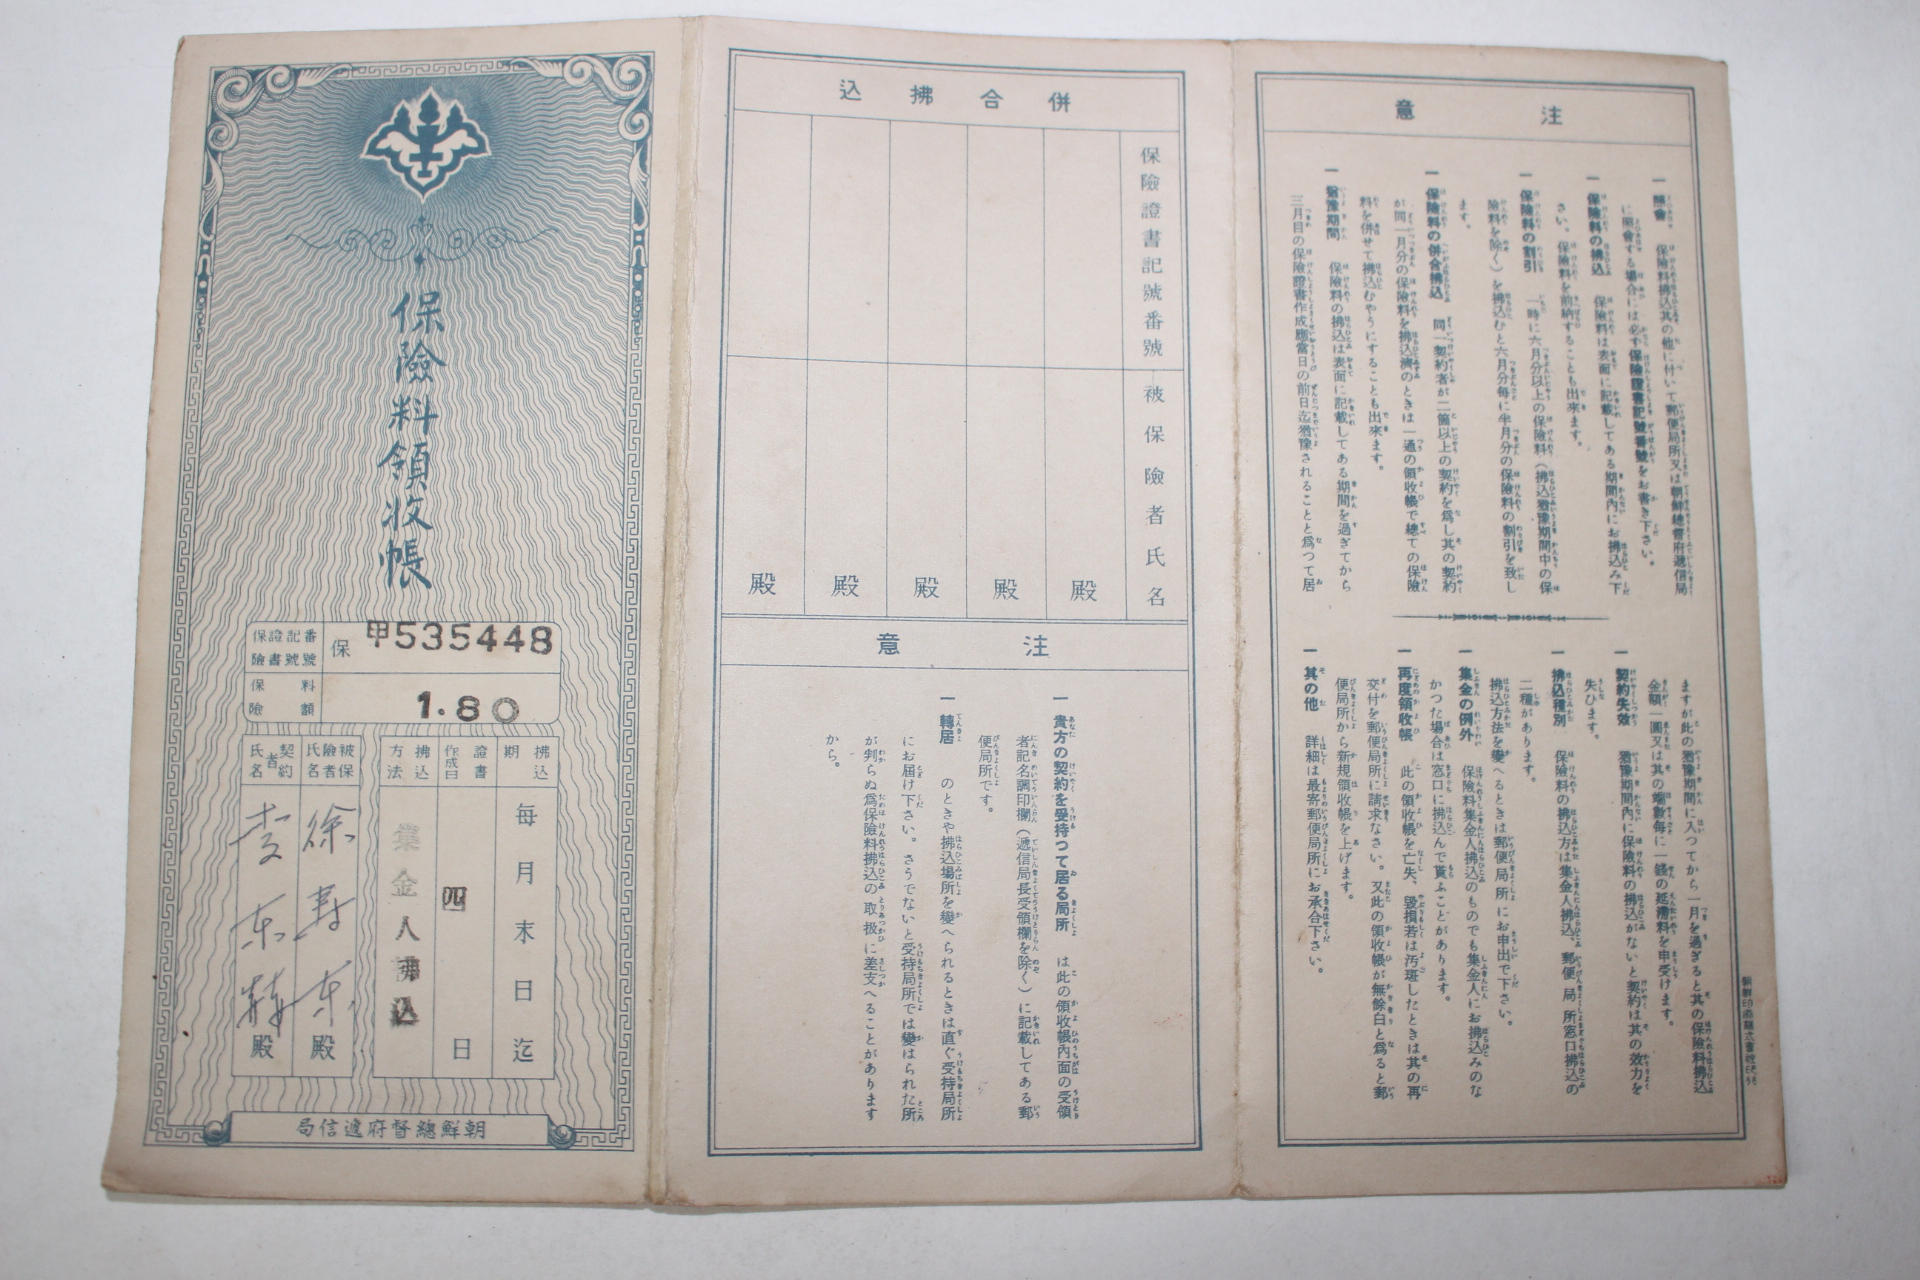 保險料領收帳
保險證書記號番號
保
甲535448
保險料額
1.80
拂込期
每月末日迄
證書作成日
四
日
拂込方法
集金人拂込
被保險者氏名
徐壽東
殿
契約者氏名
李東
殿
朝鮮總督府遞信局
併合拂込
保險證書記號番號
被保險者氏名
殿
殿
殿
殿
殿
注意
一 貴方の契約を受持つて居る局所 は此の領收帳內面の受領
者記名調印欄(遞信局長受領欄を除く)に記載してある郵
便局所です。
一 轉居 のときや拂込場所を變へられるときは直ぐ受持局所
にお届け下さい。さうでないと受持局所では變はられた所
が判らぬ爲保險料拂込の取扱に差支へることがあります
から。
注意
一 照會 保險料拂込其の他に付いて郵便局所又は朝鮮總督府遞信局
に照會する場合には必ず保險證書記號番號をお書き下さい。
一 保險料の拂込 保險料は表面に記載してある期間內にお拂込み下
さい、保險料を前納することも出來ます。
一 保險料の割引 一時に六月分以上の保險料(拂込猶豫期間中の保
險料を除く)を拂込むと六月分每に半月分の保險料の割引を致し
ます。
一 保險料の併合拂込 同一契約者が二箇以上の契約を爲し其の契約
が同一月分の保險料を拂込濟のときは一通の領收帳で總ての保險
料を併せて拂込むやうにすることも出來ます。
一 猶豫期間 保險料の拂込は表面に記載してある期間を過ぎてから
三月目の保險證書作成應當日の前日迄猶豫されることと爲つて居
ますが此の猶豫期間に入つてから一月を過ぎると其の保險料拂込
金額一圓又は其の端數每に一錢の延滯料を申受けます。
一 契約失效 猶豫期間內に保險料の拂込がないと契約は其の效力を
失ひます。
一 拂込種別 保險料の拂込方は集金人拂込、郵便局所窓口拂込の
二種があります。
拂込方法を變へるときは郵便局所にお申出で下さい。
一 集金の例外 保險料集金人拂込のものでも集金人にお拂込みのな
かつた場合は窓口に拂込んで貰ふことがあります。
一 再度領收帳 此の領收帳を亡失、毀損若は汚斑したときは其の再
交付を郵便局所に請求なさい。又此の領收帳が無餘白と爲ると郵
便局所から新規領收帳を上げます。
一 其の他 詳細は最寄郵便局所にお承合下さい。